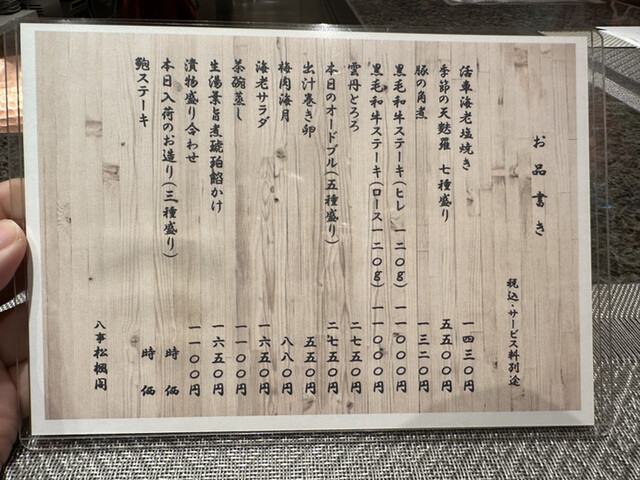 お品書き
税込・サービス料別途
活車海老塩焼き 一四三〇円
季節の天麩羅 七種盛り 五五〇〇円
豚の角煮 一三二〇円
黒毛和牛ステーキ(ヒレ 一二〇g) 一一〇〇〇円
黒毛和牛ステーキ(ロース 一二〇g) 一一〇〇〇円
雲丹とろろ 二七五〇円
本日のオードブル(五種盛り) 二七五〇円
出汁巻き卵 五五〇円
梅肉海月 八八〇円
海老サラダ 一六五〇円
茶碗蒸し 一一〇〇円
生湯葉旨煮琥珀餡かけ 一六五〇円
漬物盛り合わせ 一一〇〇円
本日入荷のお造り(三種盛り) 時価
鮑ステーキ 時価
八事松楓閣